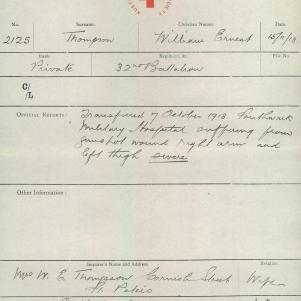 No. Surname. Christian Names.
2125 Thompson William Ernest 15/11/18
Rank Regiment, &c. File No.
Private 32nd Battalion
C/
L
OFFICIAL REPORTS: Transferred 7 October 1918 Southwark
Military Hospital suffering from
gunshot wound right arm and
left thigh severe
Other Information:
Inquirer's Name and Address Relation
Mrs W. E. Thompson Cornish Street Wife